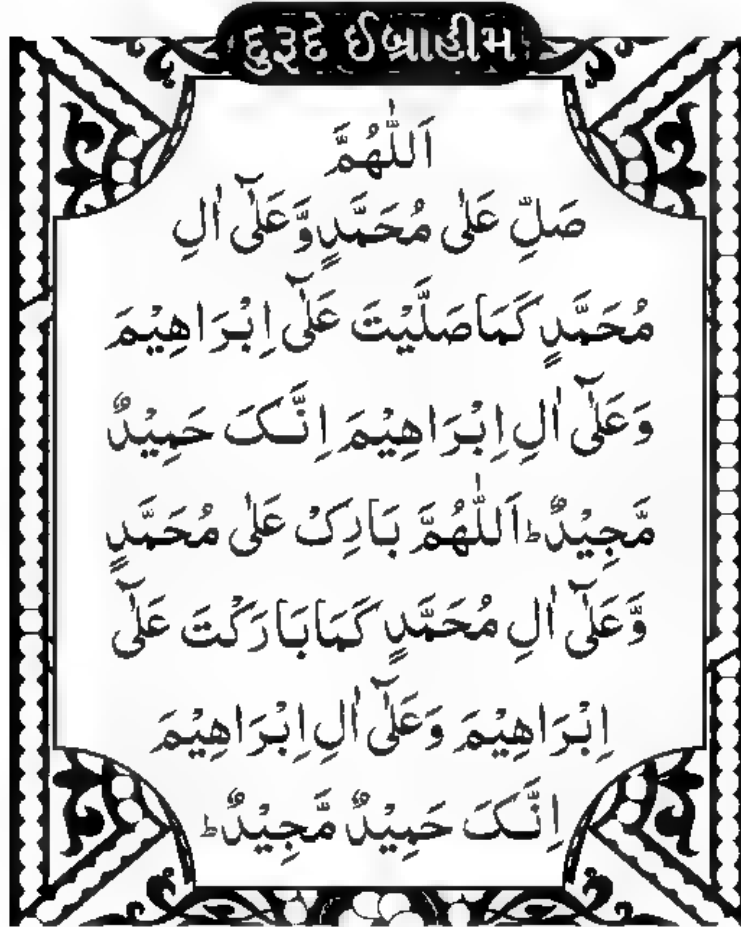 દુરૂદે ઈબ્રાહીમ
اَللّٰهُمَّ
صَلِّ عَلٰی مُحَمَّدٍ وَّعَلٰٓی اٰلِ
مُحَمَّدٍ کَمَا صَلَّیْتَ عَلٰٓی اِبْرَاهِیْمَ
وَعَلٰٓی اٰلِ اِبْرَاهِیْمَ اِنَّکَ حَمِیْدٌ
مَّجِیْدٌ ؕ اَللّٰهُمَّ بَارِکْ عَلٰی مُحَمَّدٍ
وَّعَلٰٓی اٰلِ مُحَمَّدٍ کَمَا بَارَکْتَ عَلٰٓی
اِبْرَاهِیْمَ وَعَلٰٓی اٰلِ اِبْرَاهِیْمَ
اِنَّکَ حَمِیْدٌ مَّجِیْدٌ ؕ